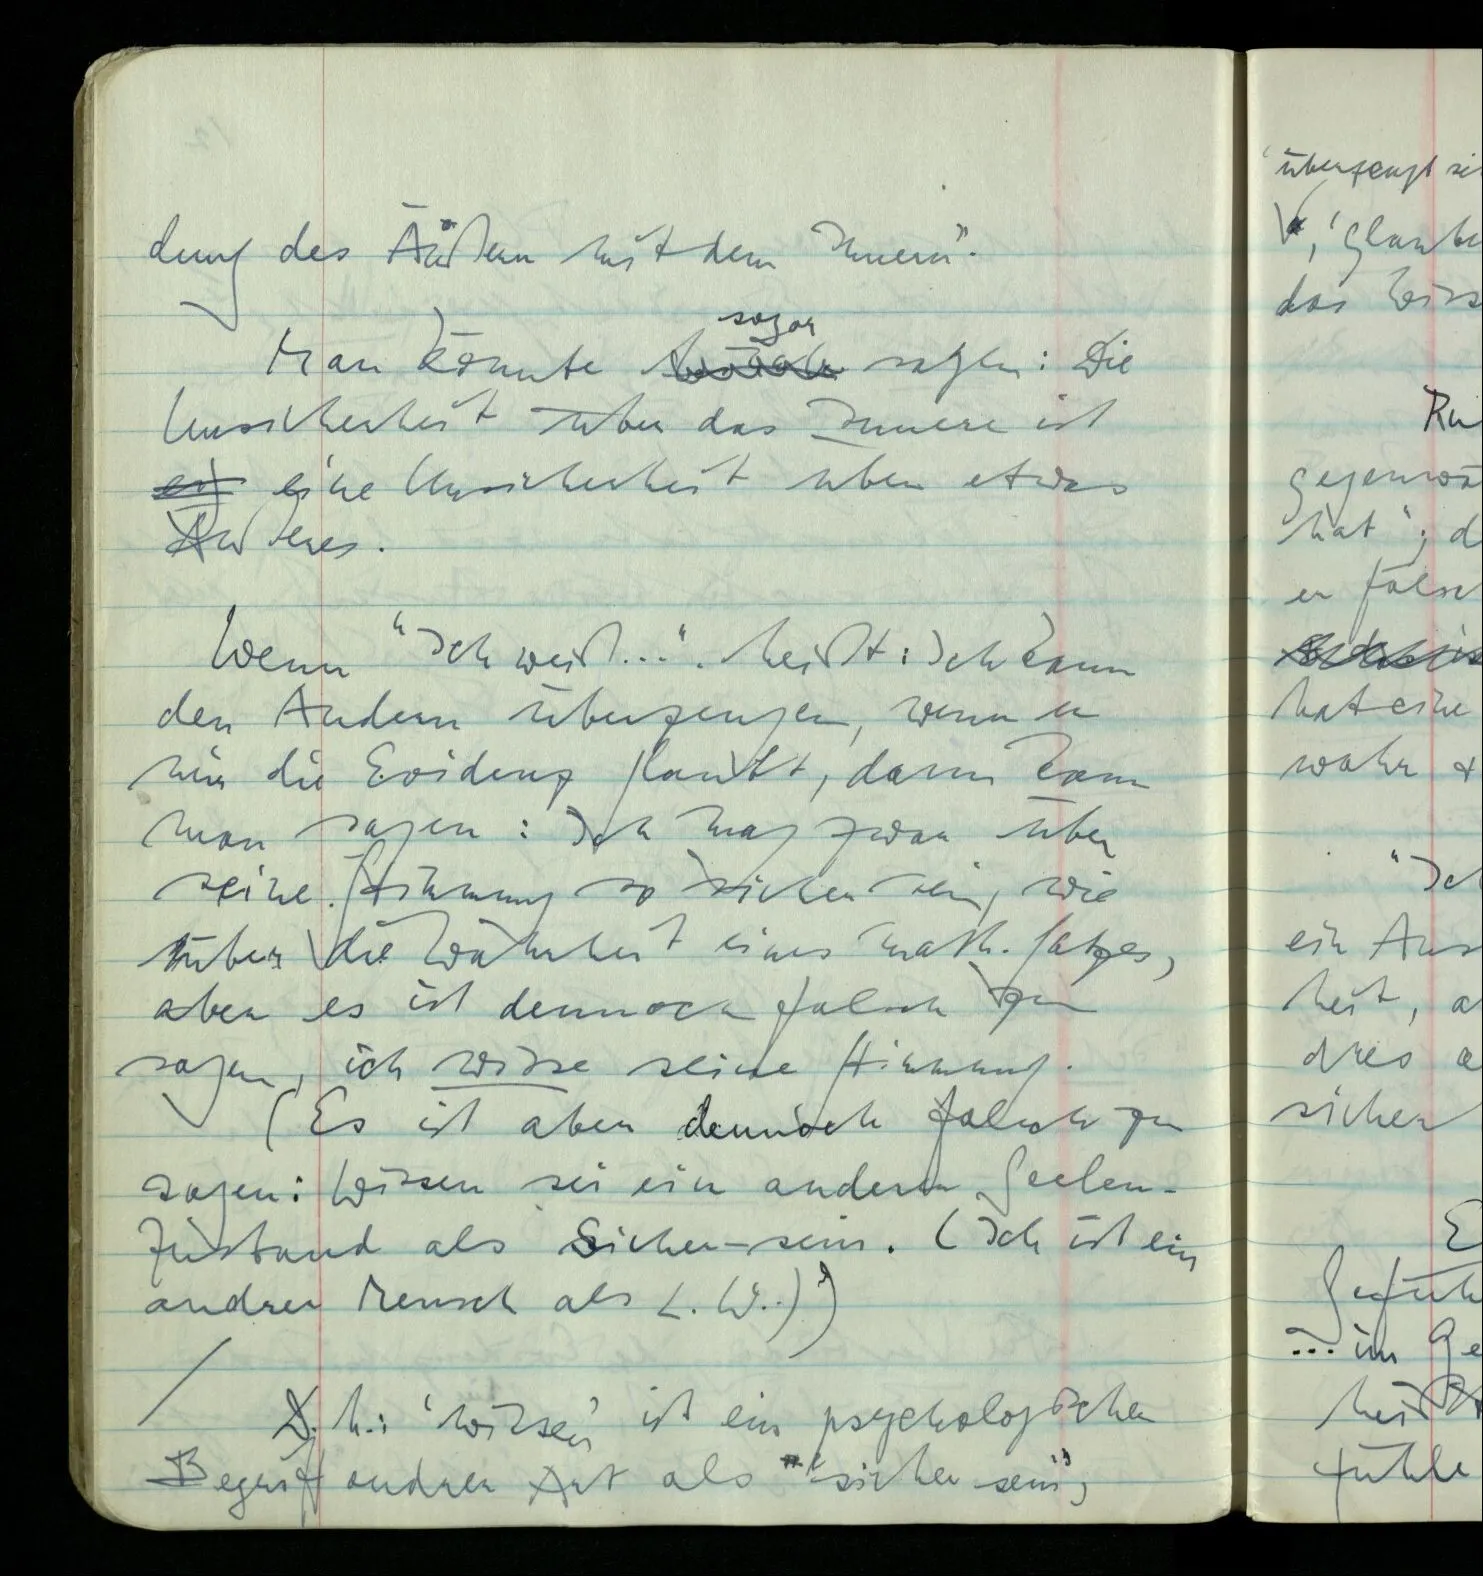 dung des Äußern mit dem Innern".
Man könnte sogar sagen: Die
Unsicherheit über das Innere ist
eine Unsicherheit über etwas
Äußeres.
Wenn "Ich weiß…" heißt: Ich kann
den Andern überzeugen, wenn er
mir die Evidenz glaubt, dann kann
man sagen: Ich mag zwar über
seine Stimmung so sicher sein, wie
über die Wahrheit eines math. Satzes,
aber es ist dennoch falsch zu
sagen, ich wisse seine Stimmung.
(Es ist aber dennoch falsch zu
sagen: Wissen sei ein anderer Seelen-
zustand als Sicher-sein. (Ich ist ein
andrer Mensch als L.W..))
/
D.h.: 'wissen' ist ein psychologischer
Begriff andrer Art als 'sicher sein',
überzeugt sei
', 'glaube
das Wiss
Ru
gegenwä
hat"; d
er falsch
hat eine
wahr &
"Ich
ein Aus
heit, a
dies a
sicher
E
Gefüh
... im Ge
heißt
fühle